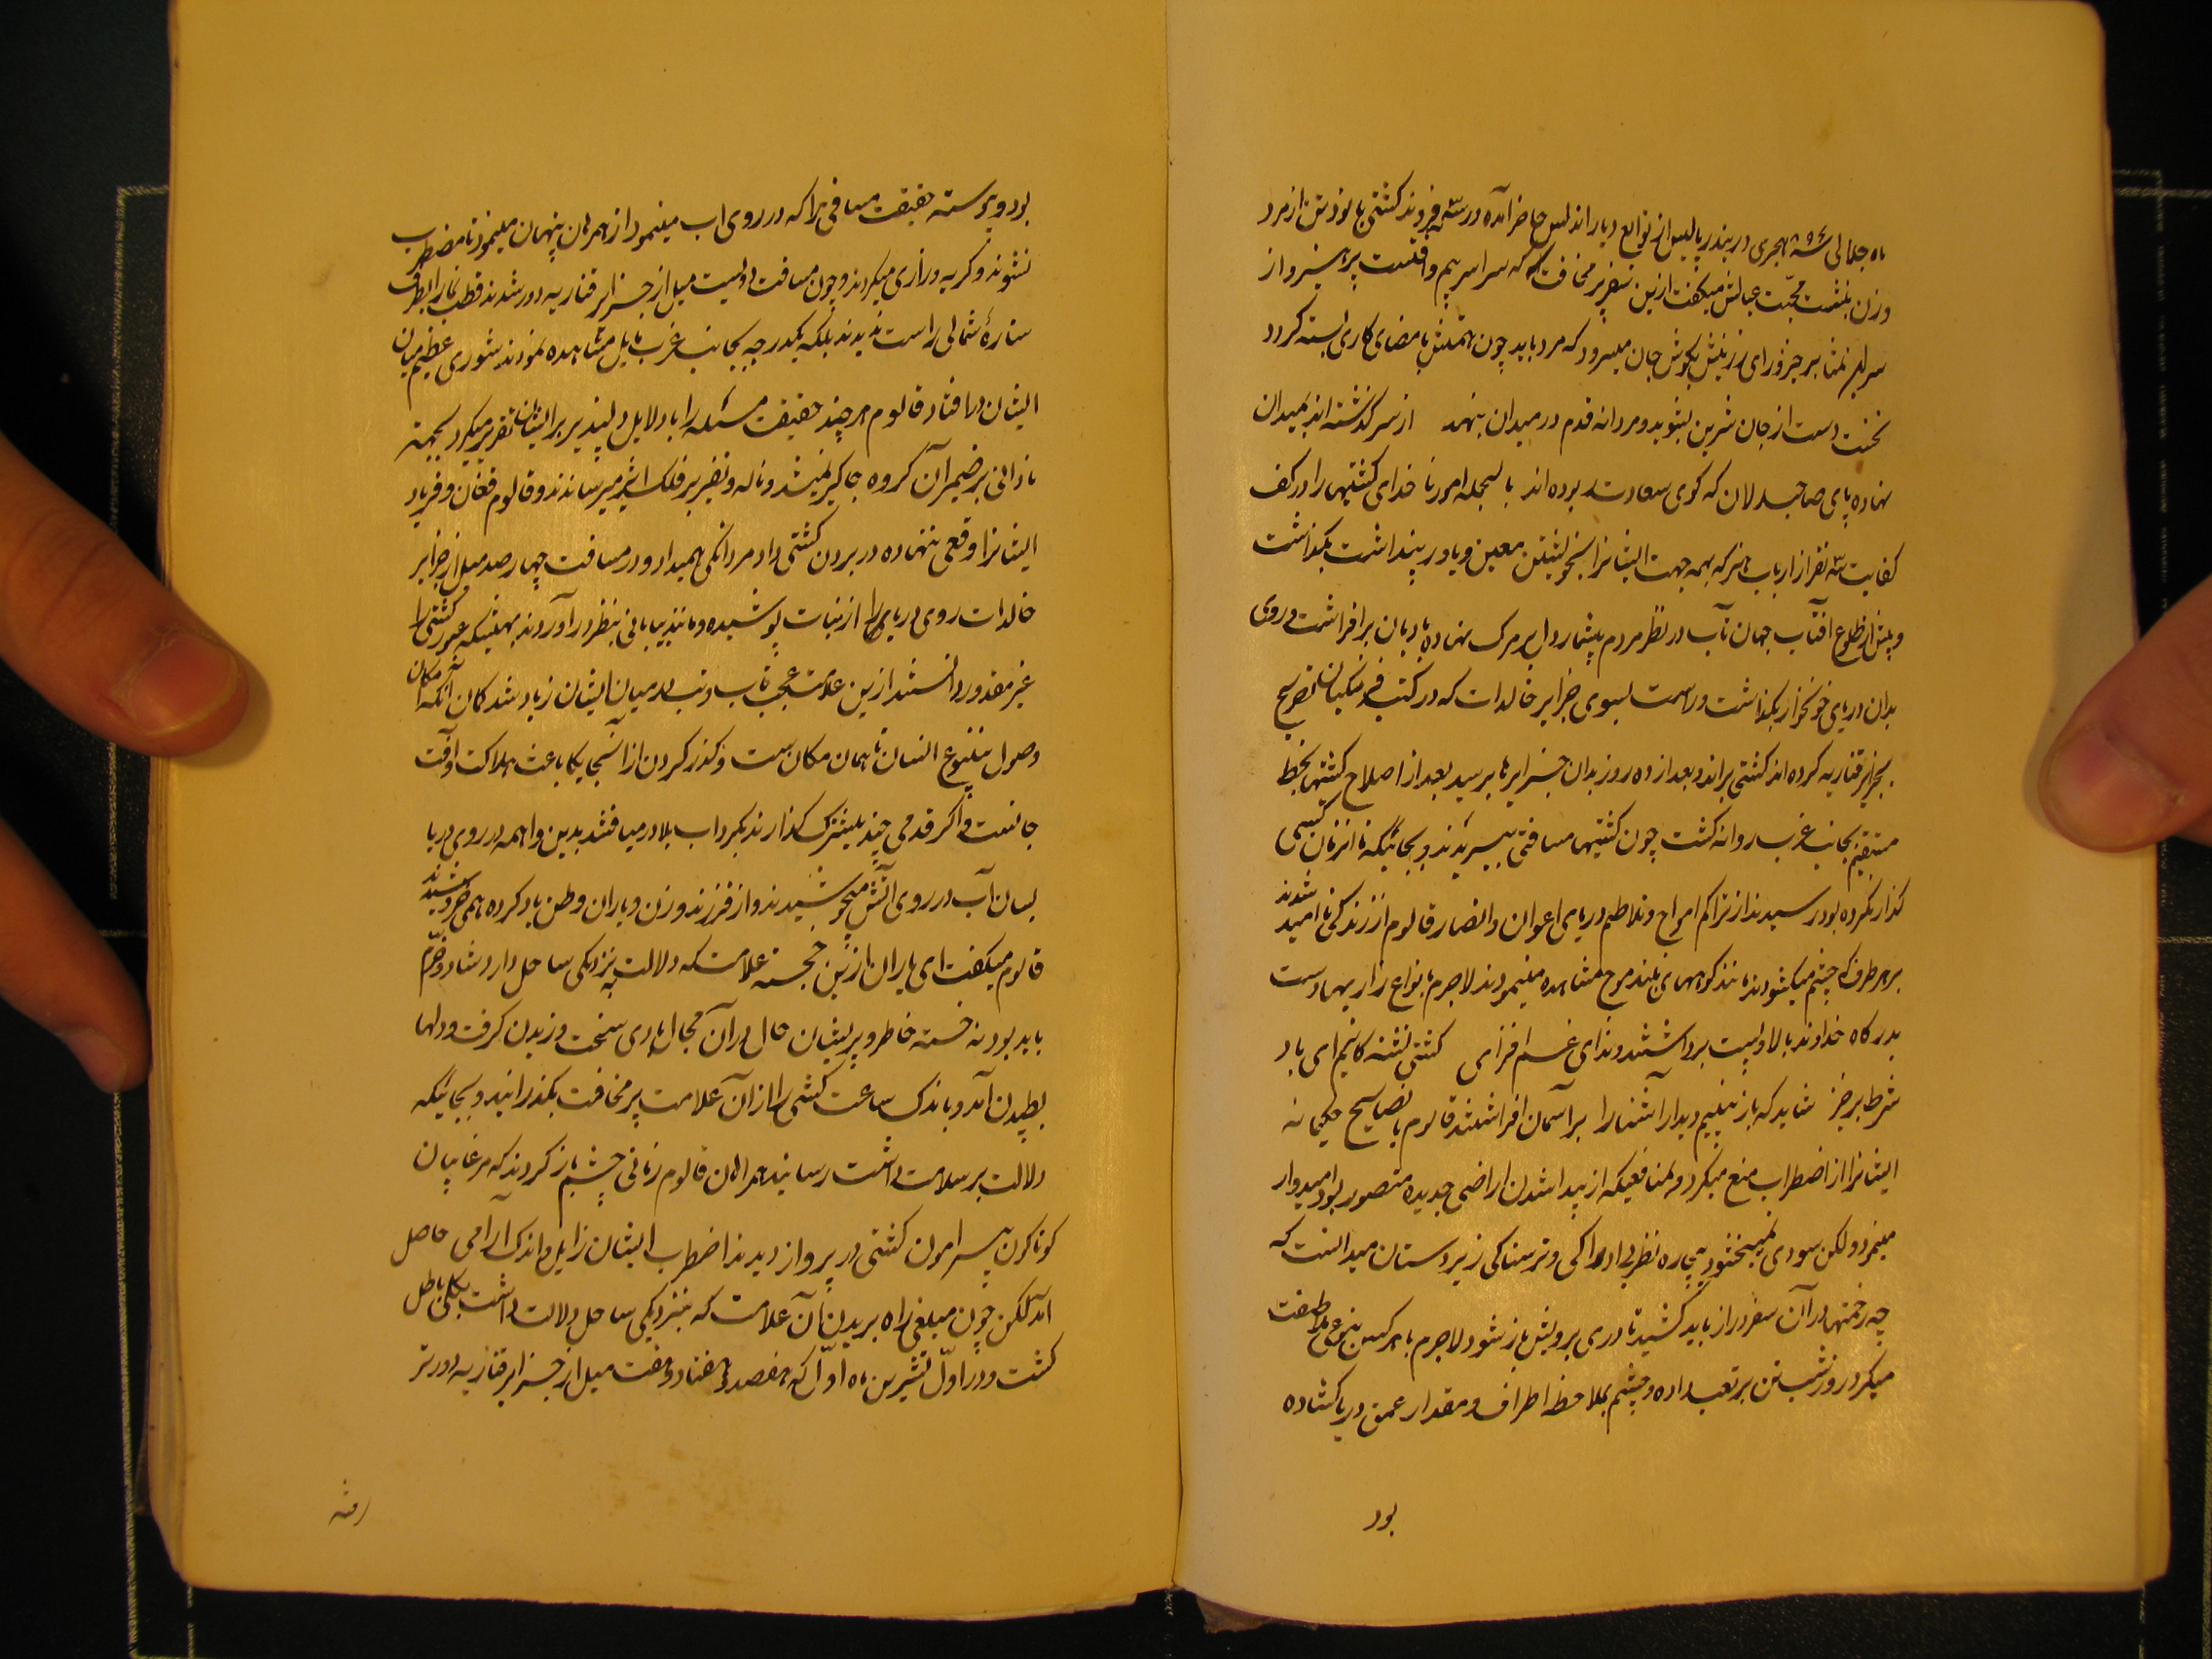 ماه جمالی سنه ۸۹۶ هجری در بندر پالیس از توابع دیار اندلس حاضر آمده در سه فروند کشتی با نود تن از مرد
و زن بنشست محبت عیالش میگفت ازین سفر پر مخافت که سراسر بیم و آفتست بپرهیز و از
سر این تمنا برخیز و رای رزینش بگوش جان میسرود که مرد باید چون همتش بامضای کاری بسته گردد
نخست دست از جان شیرین بشوید و مردانه قدم در میدان بنهد از سر گذشته اند بمیدان
نهاده پای صاحبدلان که گوی سعادت ربوده اند بالجمله امور ناخدای کشتیها را در کف
کفایت سه نفر از ارباب هنر که بهمه جهت ایشانرا بخویشتن معین و یاور پنداشت بگذاشت
و پیش از طلوع آفتاب جهان تاب در نظر مردم بیشمار دل بر مرگ نهاده بادبان برافراشت و روی
بدان دریای خونخوار بگذاشت و راست بسوی جزایر خالدات که در کتب فرنگیان تصریح
بجزایر قناریه کرده اند کشتی براند و بعد از ده روز بدان جزایرها برسید بعد از اصلاح کشتیها بخط
مستقیم بجانب غرب روانه گشت چون کشتیها مسافتی بسپریدند و بجائیکه تا انزمان کسی
گذار نکرده بود رسیدند از تراکم امواج و تلاطم دریای اعوان و انصار قالوم از زندگی ناامید شدند
بر هر طرف که چشم میگشودند مانند کوههای بلند موج مشاهده مینمودند لاجرم بانواع زاریها دست
بدرگاه خداوند بالا و پست برداشتند و ندای غم افزای کشتی نشسته گانیم ای باد
شرطه برخیز شاید که باز بینیم دیدار آشنا را بر آسمان افراشتند قالوم با نصایح حکیمانه
ایشانرا از اضطراب منع میکرد و بمنافعیکه از پیدا شدن اراضی جدیده متصور بود امیدوار
مینمود ولکن سودی نمیبخشود بیچاره نظر بی ادراکی و ترسناکی زیردستان میدانست که
چه زحمتها در آن سفر دراز باید کشید تا دری برویش باز شود لاجرم با هر کس بنوعی ملاطفت
میکرد روز شب تن بر تعب داده و چشم بملاحظه اطراف و مقدار عمق دریا گشاده
بود
بود و پیوسته حقیقت مسافتی را که در روی اب مینمود از همرهان پنهان مینمود تا مضطرب
نشوند و گریه و زاری میکردند و چون مسافت دویست میل از جزایر قناریه دور شدند قطب نما را بطرف
ستارهٔ شمالی راست ندیدند بلکه یکدرجه بجانب غرب مایل مشاهده نمودند شوری عظیم میان
ایشان درافتاد قالوم هر چند حقیقت مسئله را با دلایل دلپذیر بر ایشان تقریر میکرد بجهة
نادانی بر ضمیر آن گروه جاگیر نمیشد و ناله و نفیر بر فلک اثیر میرساندند و قالوم فغان و فریاد
ایشانرا وقعی ننهاده در بردن کشتی داد مردانگی همیداد و در مسافت چهارصد میل از جزایر
خالدات روی دریای را از نبات پوشیده و مانند بیابانی بنظر درآوردند بهیئتیکه عبور کشتی را
غیر مقدور دانستند ازین علامت عجب تاب و تب در میان ایشان زیاد شد گمان آنکه امکان
وصول بنی نوع انسان تا همان مکان است و گذر کردن از آنجا یکجا باعث هلاکت و آفت
جانست و اگر قدمی چند بیشترک گذارند بگرداب بلا در میافتند بدین واهمه در روی دریا
بسان آب در روی آتش میجوشیدند و از فرزند و زن و یاران وطن یاد کرده همی خروشیدند
قالوم میگفت ای یاران ازین خجسته علامت که دلالت بنزدیکی ساحل دارد شاد و خرم
باید بود نه خسته خاطر و پریشان حال در آن مجال بادی سخت وزیدن گرفت و دلها
بطپیدن آمد و باندک ساعت کشتی را از آن علامت پر مخافت بگذرانید و بجائیکه
دلالت بر سلامت داشت رسانید همراهان قالوم زمانی چشم باز کردند که مرغابیان
گوناگون پیرامون کشتی در پرواز دیدند اضطراب ایشان زایل و اندک آرامی حاصل
آمد لکن چون مبلغی راه بریدن آن علامت که بنزدیکی ساحل دلالت داشت بکلی باطل
گشت و در اول تشرین ماه اول که هفصد و هفتاد و هفت میل از جزایر قناریه دورتر
رفته